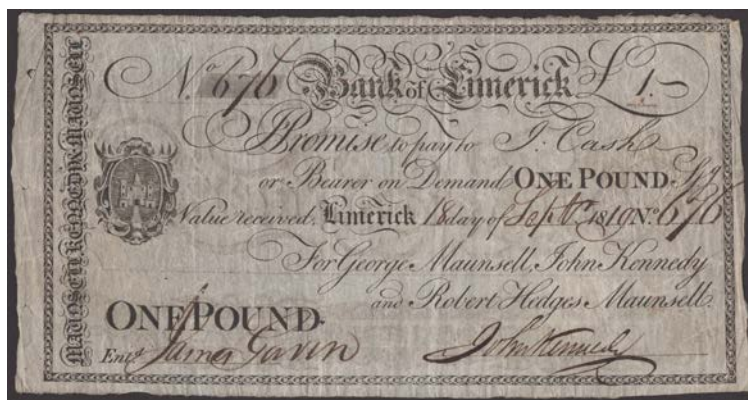 No. 676 Bank of Limerick £ 1.-
I Promise to pay to J. Cash
or Bearer on Demand ONE POUND. Stg
Value received, Limerick 18 day of Septr. 1819 No. 676
For George Maunsell, John Kennedy
and Robert Hedges Maunsell.
ONE POUND.
Entd. James Gavin John Kennedy